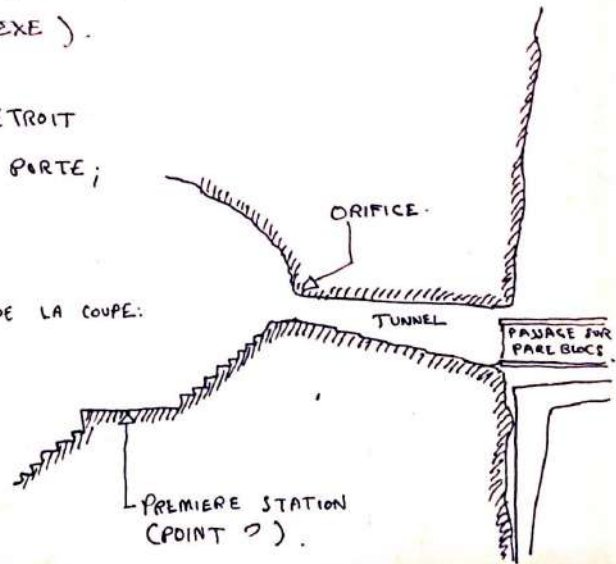 EXE ).
ETROIT
PORTE ;
ORIFICE.
DE LA COUPE:
TUNNEL
PASSAGE SUR
PARE BLOCS.
PREMIERE STATION
(POINT ).